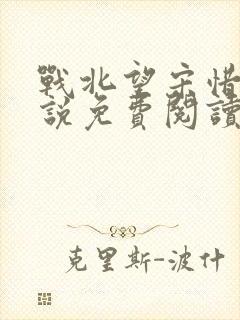 戰北望宋惜
說免費閱讀
克里斯-波什